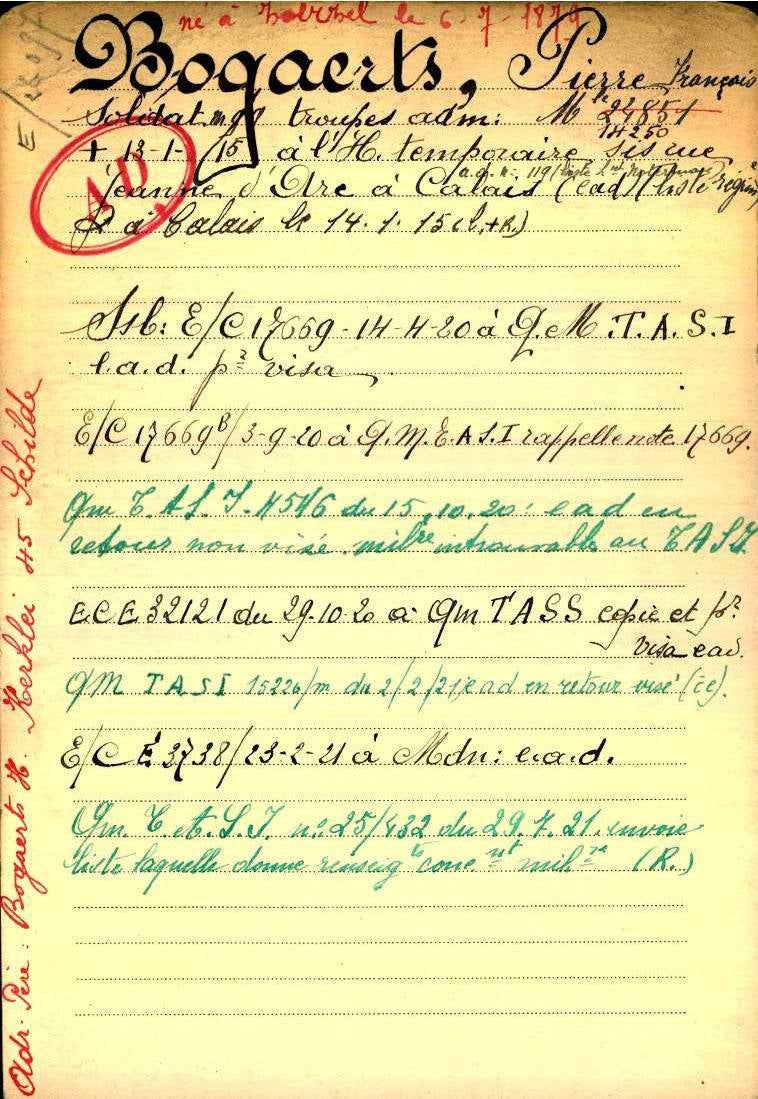 né à le 6-7-1879
Bogaerts, Pierre François
Soldat troupes adm: Mle 24851
14250
+ 13-1-15 à l'H. temporaire sis rue
a.g. n: 119/liste
Jeanne d'Arc à Calais (ead) (liste
AD
à Calais le 14.1.15 (l.+R.)
E/C 17669-14-4-20 à Q.M.T.A.S.I
e.a.d. pr visa
E/C 17669B/3-9-20 à Q.M.T.A.S.I rappelle note 17669.
Qm T.A.S.I. 4546 du 15.10.20: ead en
retour non visé. milre introuvable au TASI
E C E 32121 du 29-10-20 à Qm TASS copie et pr
visa ead.
QM TASI 15226/m du 2/2/21, ead en retour visé (ce).
E/C E 3738/23-2-21 à Mdn: e.a.d.
Qm T.A.S.I. n: 25/432 du 29.7.21. envoie
liste laquelle donne renseigts conc. nt milre (R.)
Adr. Père: Bogaerts H. Kerklei 45 Schilde